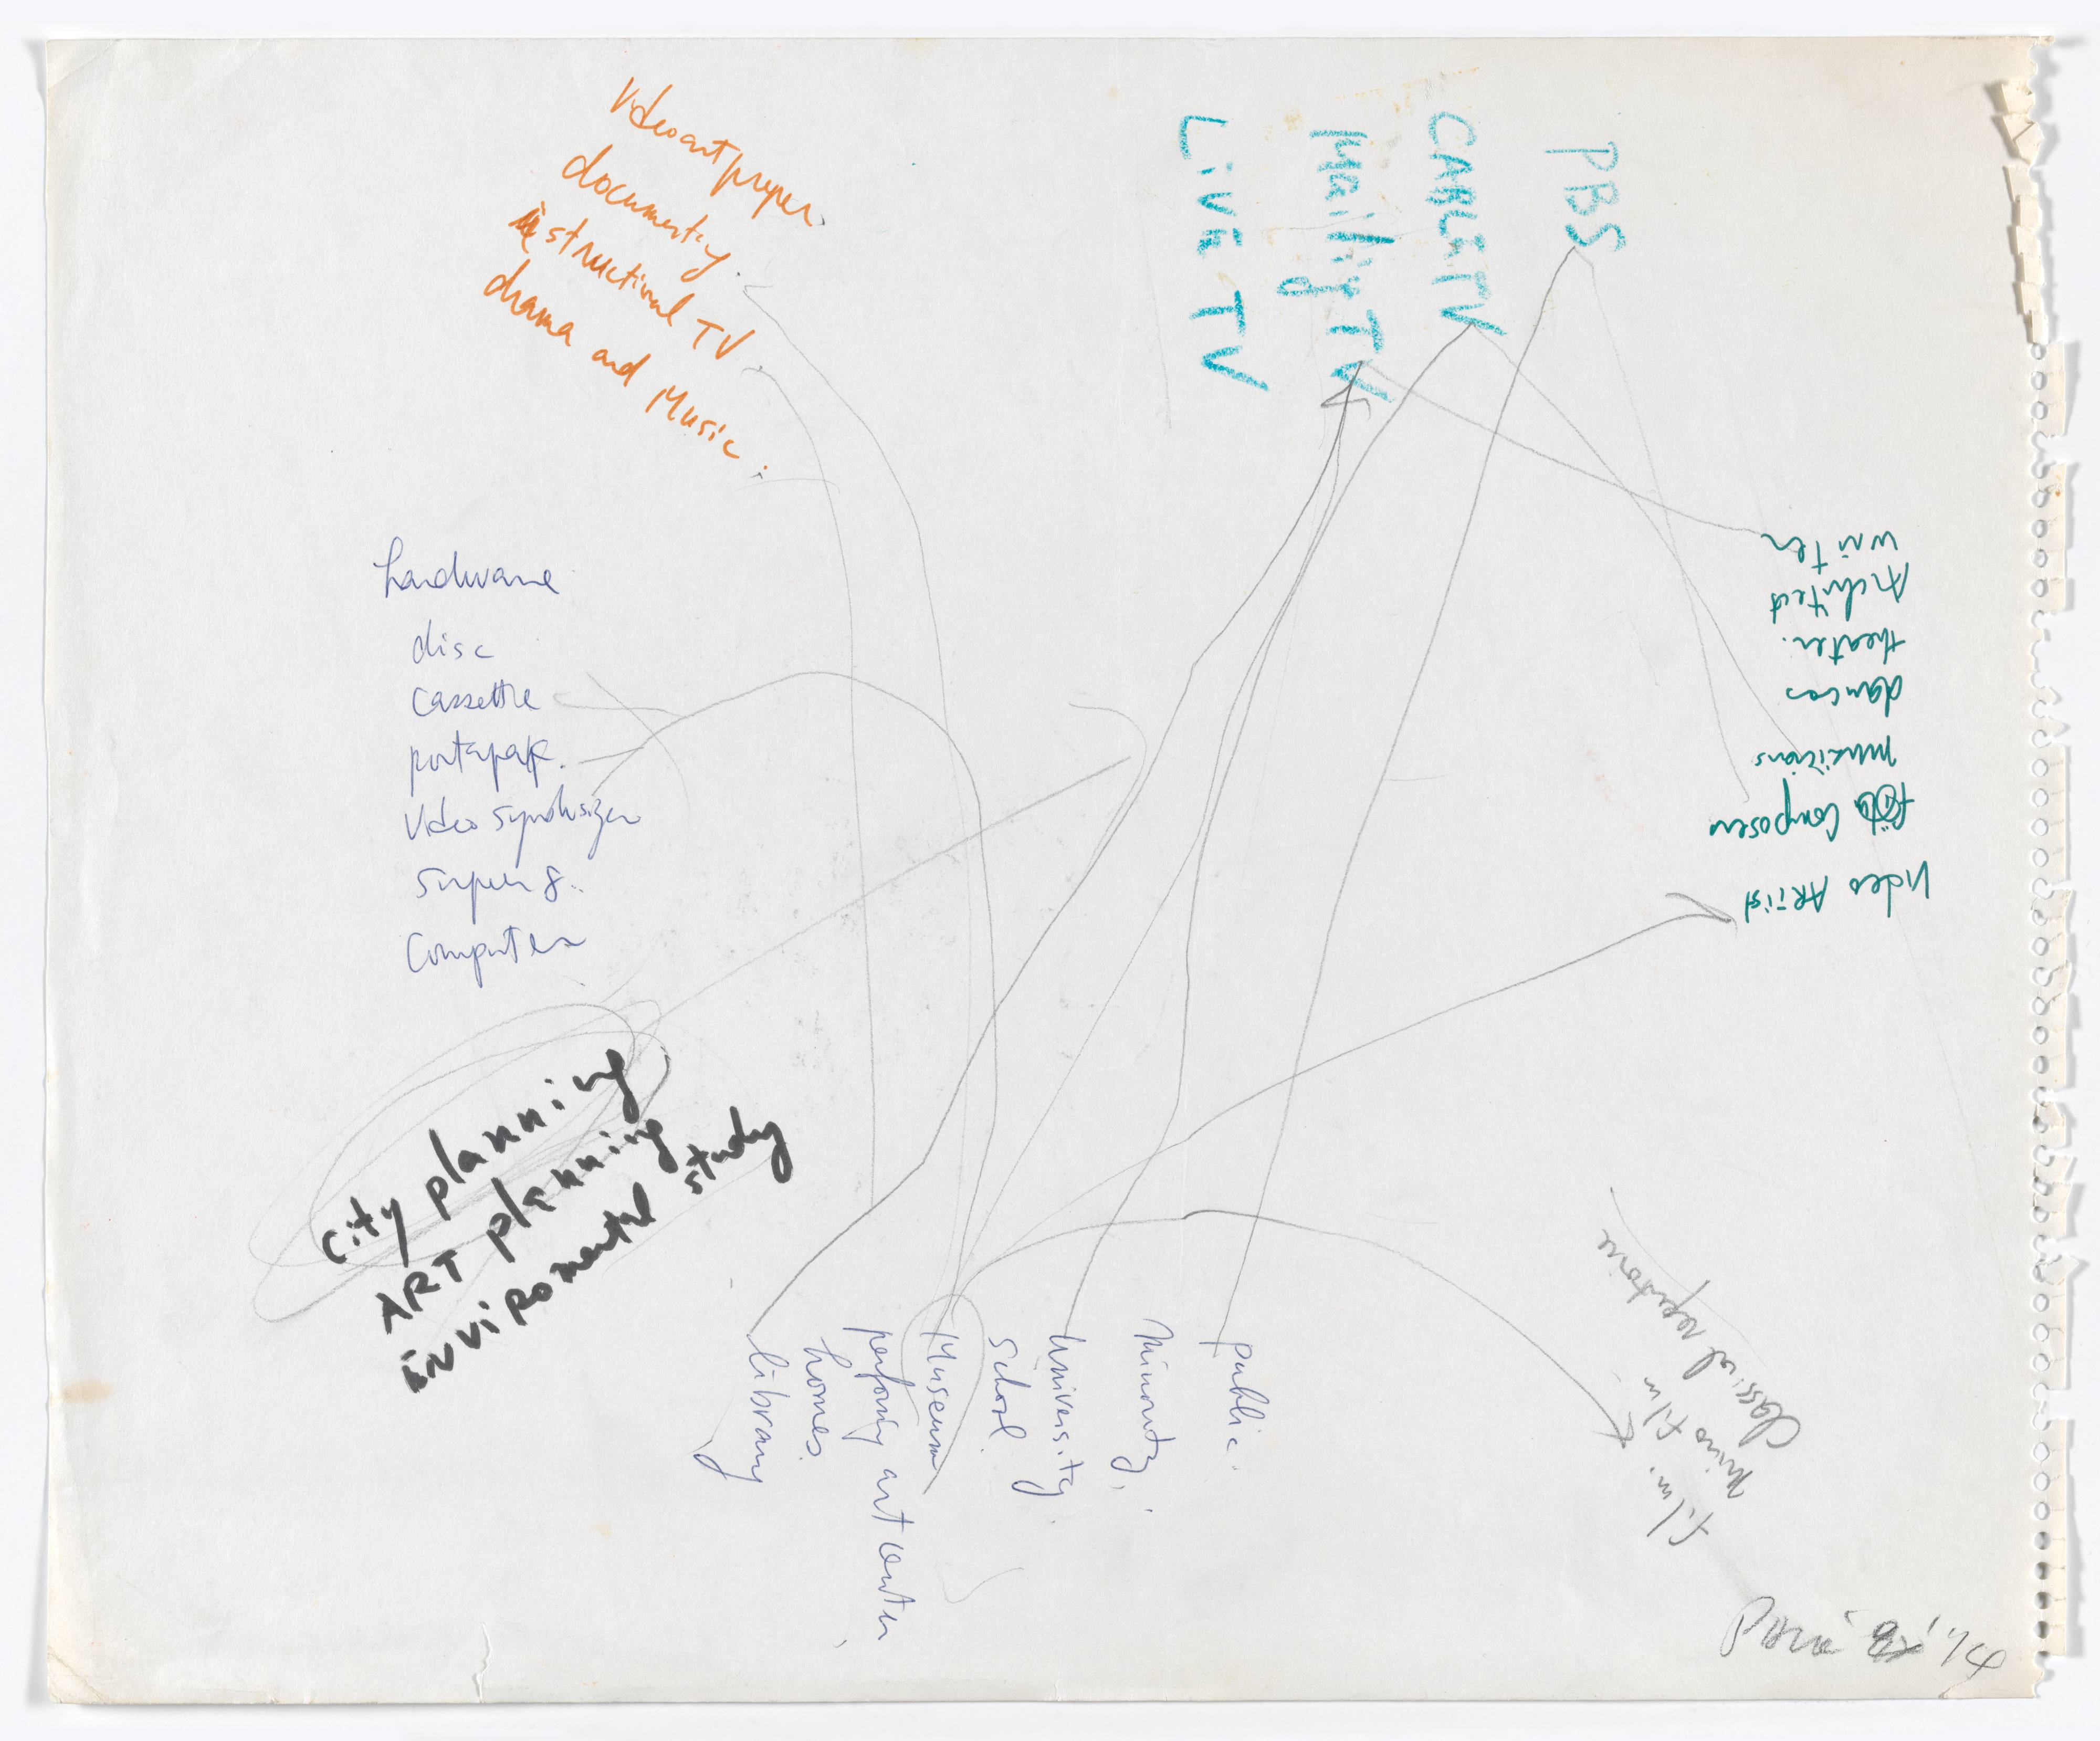 Video art proper
documentary.
instructional TV
drama and Music.
PBS
CABLE TV
Mailing TV
LiVE TV
writer
Architect
theater.
dancers
musicians
Composer
Video ARTist
hardware
disc
cassette
portapak.
Video synthsizer
super 8.
Computer
City planning
ART planning
ENViRomental study
public.
Minority,
University
School
Museum
perfoming art center
homes.
library
film.
Micro film.
Classical repertoire